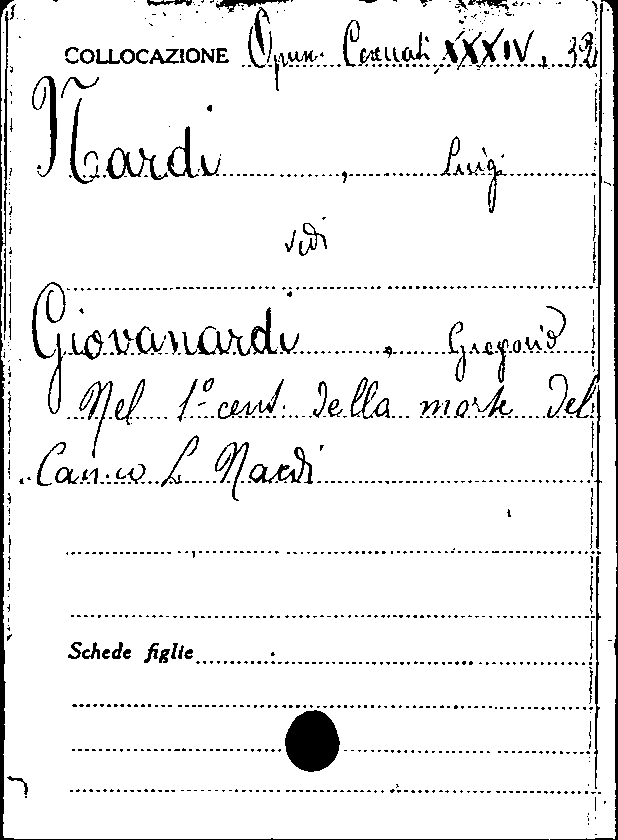 COLLOCAZIONE Opusc. Cesenati XXXIV. 32
Nardi, Luigi
vedi
Giovanardi, Gregorio
Nel 1º cent. della morte del
Can.co L Nardi
Schede figlie